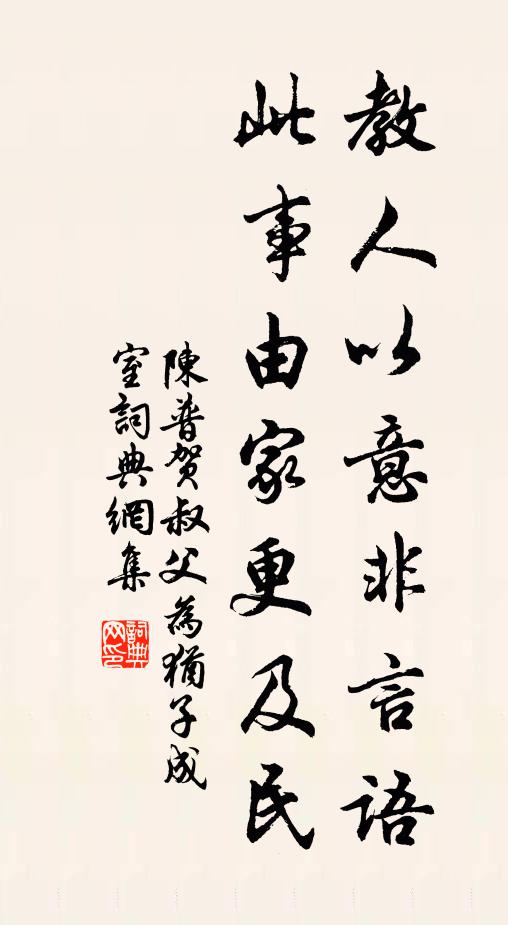 教人以意非言語
此事由家更及民
陳普賀叔父為猶子成
室詞典網集
詞典
网印